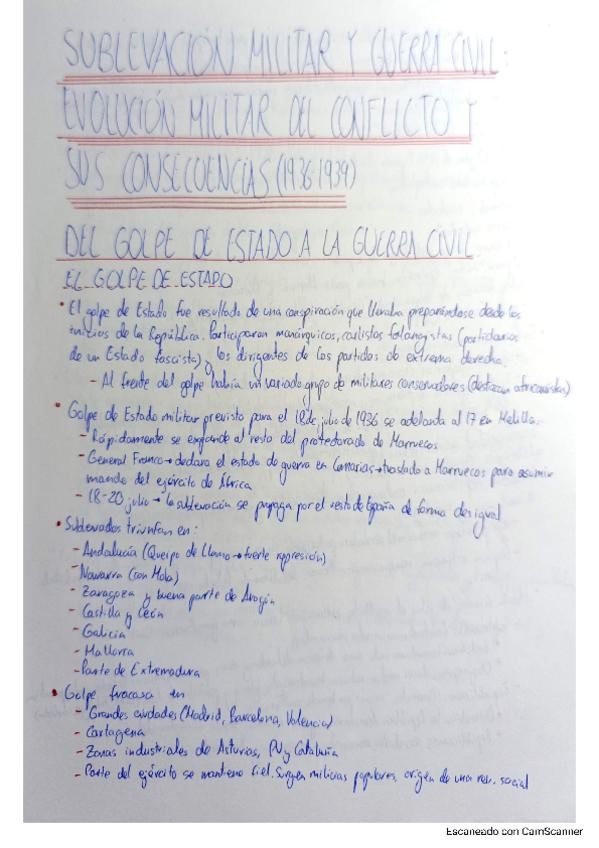 SUBLEVACIÓN MILITAR Y GUERRA CIVIL:
EVOLUCIÓN MILITAR DEL CONFLICTO Y
SUS CONSECUENCIAS (1936-1939)
DEL GOLPE DE ESTADO A LA GUERRA CIVIL
EL GOLPE DE ESTADO
• El golpe de Estado fue resultado de una conspiración que llevaba preparándose desde los
inicios de la República. Participaron monárquicos, carlistas falangistas (partidarios
de un Estado fascista) y los dirigentes de los partidos de extrema derecha.
- Al frente del golpe había un variado grupo de militares conservadores (destacan africanistas)
• Golpe de Estado militar previsto para el 18 de julio de 1936 se adelanta al 17 en Melilla.
- Rápidamente se extiende al resto del protectorado de Marruecos
- General Franco → declara el estado de guerra en Canarias → traslado a Marruecos para asumir
mando del ejército de África
- 18-20 julio → la sublevación se propaga por el resto de España de forma desigual
• Sublevados triunfan en:
- Andalucía (Queipo de Llano → fuerte represión)
- Navarra (con Mola)
- Zaragoza y buena parte de Aragón
- Castilla y León
- Galicia
- Mallorca
- Parte de Extremadura
• Golpe fracasa en
- Grandes ciudades (Madrid, Barcelona, Valencia)
- Cartagena
- Zonas industriales de Asturias, PV y Cataluña
- Parte del ejército se mantiene fiel. Surgen milicias populares, origen de una rev. social
Escaneado con CamScanner